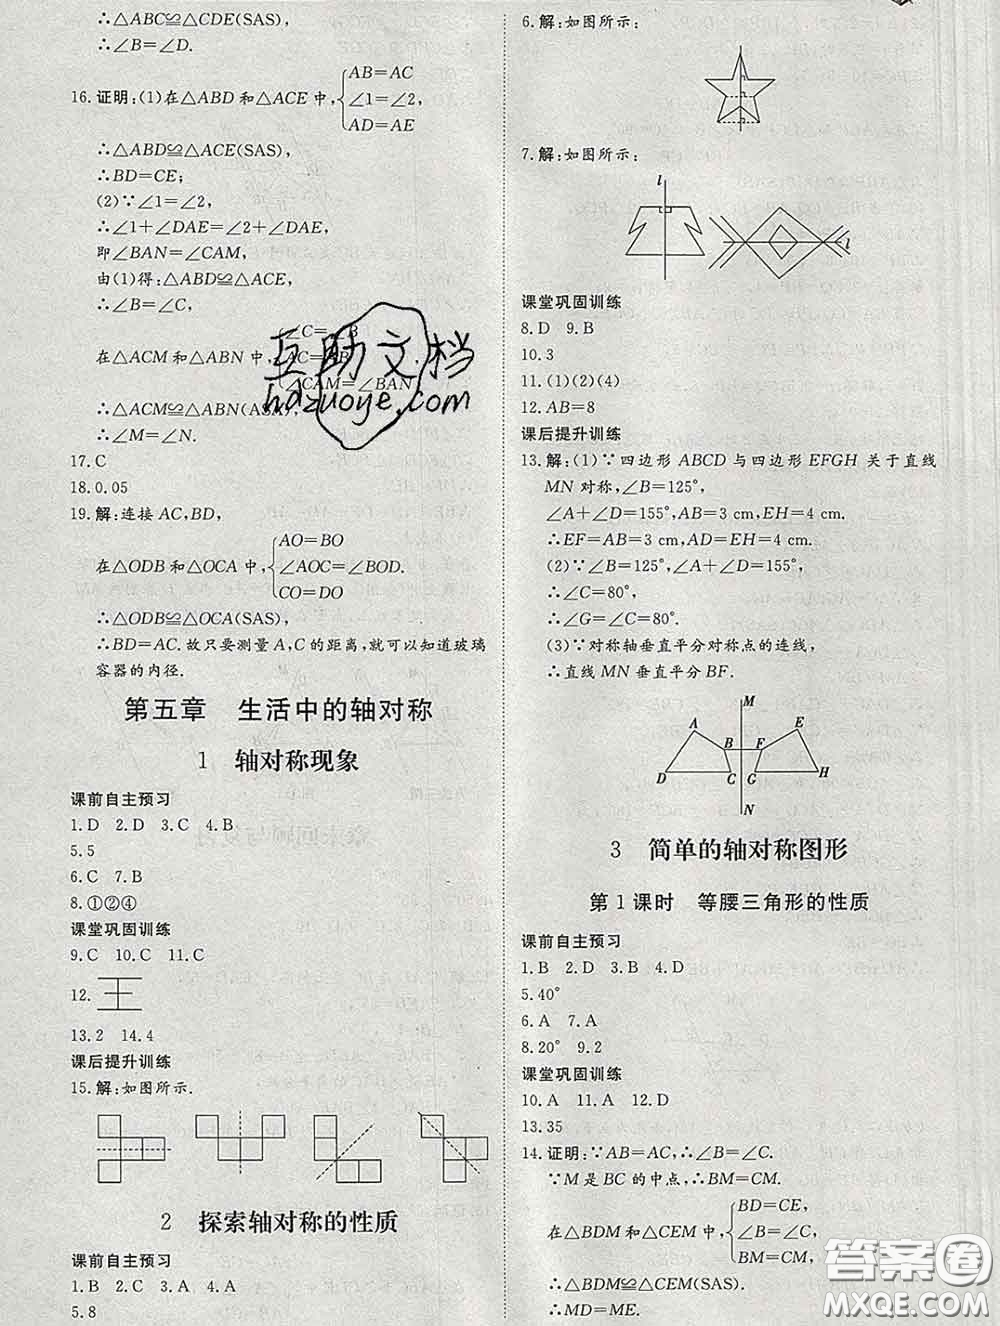 ∴△ABC≌△CDE(SAS),
∴∠B=∠D.
16.证明:(1)在△ABD 和△ACE 中,
AB=AC
∠1=∠2,
AD=AE
∴△ABD≌△ACE(SAS),
∴BD=CE;
(2)∵∠1=∠2,
∴∠1+∠DAE=∠2+∠DAE,
即∠BAN=∠CAM,
由(1)得:△ABD≌△ACE,
∴∠B=∠C,
∠C=∠B
在△ACM 和△ABN 中, AC=AB
∠CAM=∠BAN
∴△ACM≌△ABN(ASA),
∴∠M=∠N.
互助文档
hdzuoye.com
17.C
18.0.05
19.解:连接 AC,BD,
AO=BO
在△ODB 和△OCA 中, ∠AOC=∠BOD.
CO=DO
∴△ODB≌△OCA(SAS),
∴BD=AC.故只要测量 A,C 的距离,就可以知道玻璃
容器的内径.
第五章 生活中的轴对称
1 轴对称现象
课前自主预习
1.D 2.D 3.C 4.B
5.5
6.C 7.B
8.①②④
课堂巩固训练
9.C 10.C 11.C
12.王
13.2 14.4
课后提升训练
15.解:如图所示.
2 探索轴对称的性质
课前自主预习
1.B 2.C 3.A 4.A
5.8
6.解:如图所示:
7.解:如图所示:
l
l
课堂巩固训练
8.D 9.B
10.3
11.(1)(2)(4)
12.AB=8
课后提升训练
13.解:(1)∵四边形 ABCD 与四边形 EFGH 关于直线
MN 对称,∠B=125°,
∠A+∠D=155°,AB=3 cm,EH=4 cm.
∴EF=AB=3 cm,AD=EH=4 cm.
(2)∵∠B=125°,∠A+∠D=155°,
∴∠C=80°,
∴∠G=∠C=80°.
(3)∵对称轴垂直平分对称点的连线,
∴直线 MN 垂直平分 BF.
M
A E
B F
D C G H
N
3 简单的轴对称图形
第 1 课时 等腰三角形的性质
课前自主预习
1.B 2.D 3.B 4.D
5.40°
6.A 7.A
8.20° 9.2
课堂巩固训练
10.A 11.A 12.D
13.35
14.证明:∵AB=AC,∴∠B=∠C.
∵M 是 BC 的中点,∴BM=CM.
BD=CE,
在△BDM 和△CEM 中, ∠B=∠C
BM=CM,
∴△BDM≌△CEM(SAS).
∴MD=ME.
答案圈
MXQE.COM